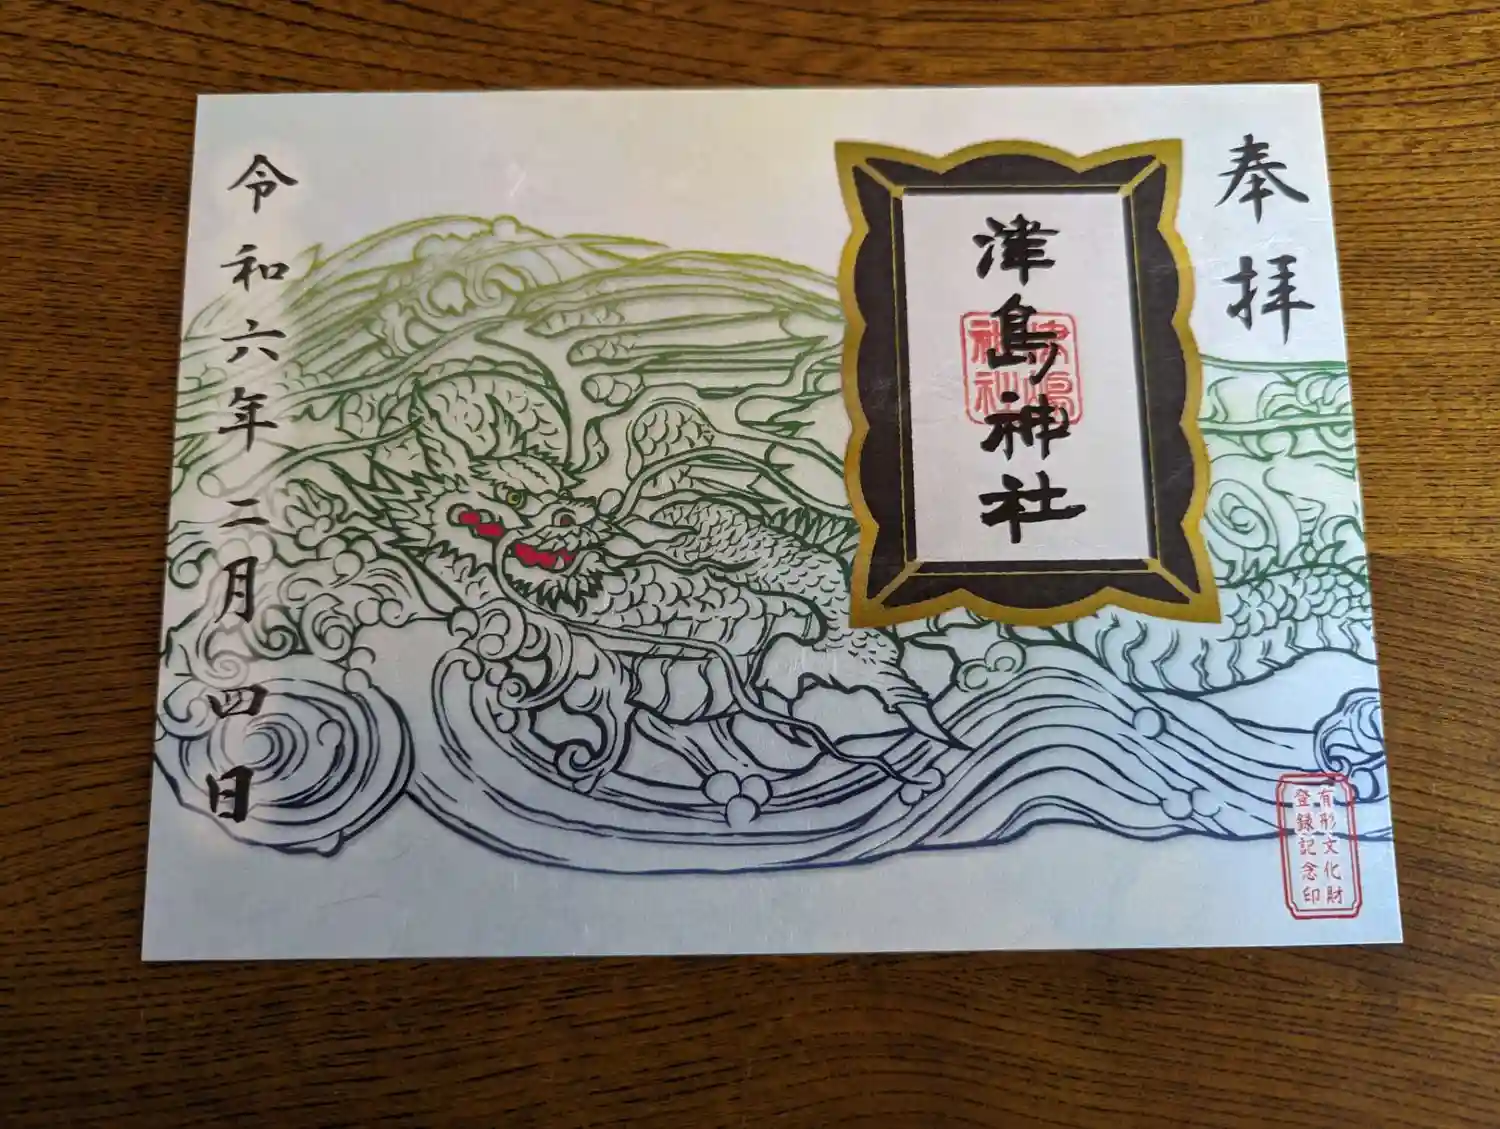 奉拝
津島神社
津島
神社
令和六年二月四日
有形文化財
登録記念印